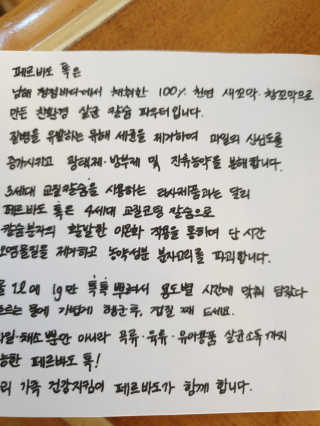 페르바도 톡은
남해 청정바다에서 채취한 100% 천연 새꼬막·참꼬막으로
만든 친환경 살균 칼슘 파우더입니다.
질병을 유발하는 유해 세균을 제거하여 과일의 신선도를
증가시키고 광택제·방부제 및 잔류농약을 분해합니다.
3세대 교질칼슘을 사용하는 타사제품과는 달리
페르바도 톡은 4세대 교질코팅 칼슘으로
칼슘분자의 활발한 이온화 작용을 통하여 단 시간
오염물질을 제거하고 농약성분 분자고리를 파괴합니다.
물 1L에 1g만 톡톡 뿌려서 용도별 시간에 맞춰 담갔다
흐르는 물에 가볍게 헹군후, 껍질 째 드세요.
과일·채소 뿐만 아니라 곡류·육류·유아용품 살균소독까지
가능한 페르바도 톡!
우리 가족 건강지킴이 페르바도가 함께 합니다.